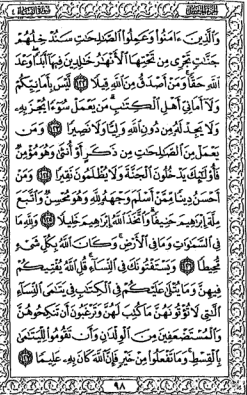 وَالَّذِينَ ءَامَنُوا وَعَمِلُوا الصَّالِحَاتِ سَنُدْخِلُهُمْ
جَنَّاتٍ تَجْرِي مِن تَحْتِهَا الْأَنْهَارُ خَالِدِينَ فِيهَا أَبَدًا وَعْدَ
اللَّهِ حَقًّا وَمَنْ أَصْدَقُ مِنَ اللَّهِ قِيلًا ١٢٢ لَّيْسَ بِأَمَانِيِّكُمْ
وَلَا أَمَانِيِّ أَهْلِ الْكِتَابِ مَن يَعْمَلْ سُوءًا يُجْزَ بِهِ
وَلَا يَجِدْ لَهُ مِن دُونِ اللَّهِ وَلِيًّا وَلَا نَصِيرًا ١٢٣ وَمَن
يَعْمَلْ مِنَ الصَّالِحَاتِ مِن ذَكَرٍ أَوْ أُنثَى وَهُوَ مُؤْمِنٌ
فَأُولَئِكَ يَدْخُلُونَ الْجَنَّةَ وَلَا يُظْلَمُونَ نَقِيرًا ١٢٤ وَمَنْ
أَحْسَنُ دِينًا مِّمَّنْ أَسْلَمَ وَجْهَهُ لِلَّهِ وَهُوَ مُحْسِنٌ وَاتَّبَعَ
مِلَّةَ إِبْرَاهِيمَ حَنِيفًا وَاتَّخَذَ اللَّهُ إِبْرَاهِيمَ خَلِيلًا ١٢٥ وَلِلَّهِ مَا
فِي السَّمَاوَاتِ وَمَا فِي الْأَرْضِ وَكَانَ اللَّهُ بِكُلِّ شَيْءٍ
مُّحِيطًا ١٢٦ وَيَسْتَفْتُونَكَ فِي النِّسَاءِ قُلِ اللَّهُ يُفْتِيكُمْ
فِيهِنَّ وَمَا يُتْلَى عَلَيْكُمْ فِي الْكِتَابِ فِي يَتَامَى النِّسَاءِ
الَّتِي لَا تُؤْتُونَهُنَّ مَا كُتِبَ لَهُنَّ وَتَرْغَبُونَ أَن تَنكِحُوهُنَّ
وَالْمُسْتَضْعَفِينَ مِنَ الْوِلْدَانِ وَأَن تَقُومُوا لِلْيَتَامَى
بِالْقِسْطِ وَمَا تَفْعَلُوا مِنْ خَيْرٍ فَإِنَّ اللَّهَ كَانَ بِهِ عَلِيمًا ١٢٧
٩٨